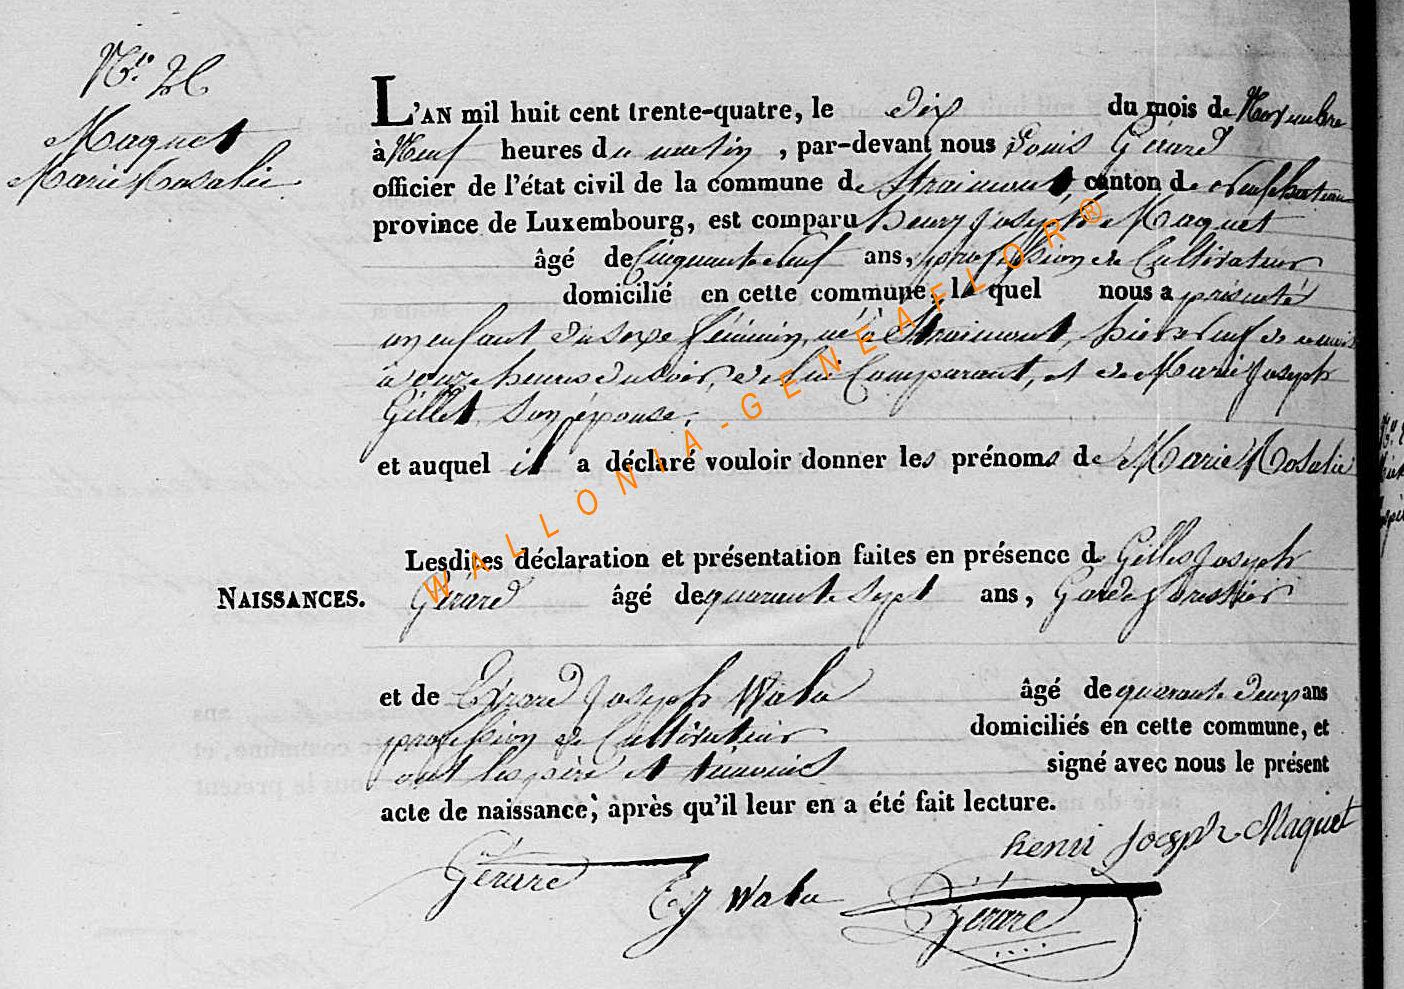 Nro
Maquet
Marie Rosalie
L'AN mil huit cent trente-quatre, le dix du mois de Novembre
à Neuf heures du matin, par-devant nous Louis Gérard
officier de l'état civil de la commune de Straimont, canton de Neufchateau
province de Luxembourg, est comparu henry Joseph Maquet
âgé de Cinquante neuf ans, profession de Cultivateur
domicilié en cette commune, lequel nous a présenté
un enfant du sexe féminin, né à Straimont, hier neuf de ce mois
à onze heures du soir, de lui Comparant, et de Marie Joseph
Gillet, son épouse,
et auquel il a déclaré vouloir donner les prénoms de Marie Rosalie
Lesdites déclaration et présentation faites en présence de Gilles Joseph
NAISSANCES. Gérard âgé de quarante sept ans, Garde forestier
et de Erard Joseph Wala âgé de quarante deux ans
profession de Cultivateur domiciliés en cette commune, et
ont les père et témoins signé avec nous le présent
acte de naissance, après qu'il leur en a été fait lecture.
henri Joesph Maquet
Gérard
EJ Wala
Gérard
WALLONIA-GENEAFLOR®